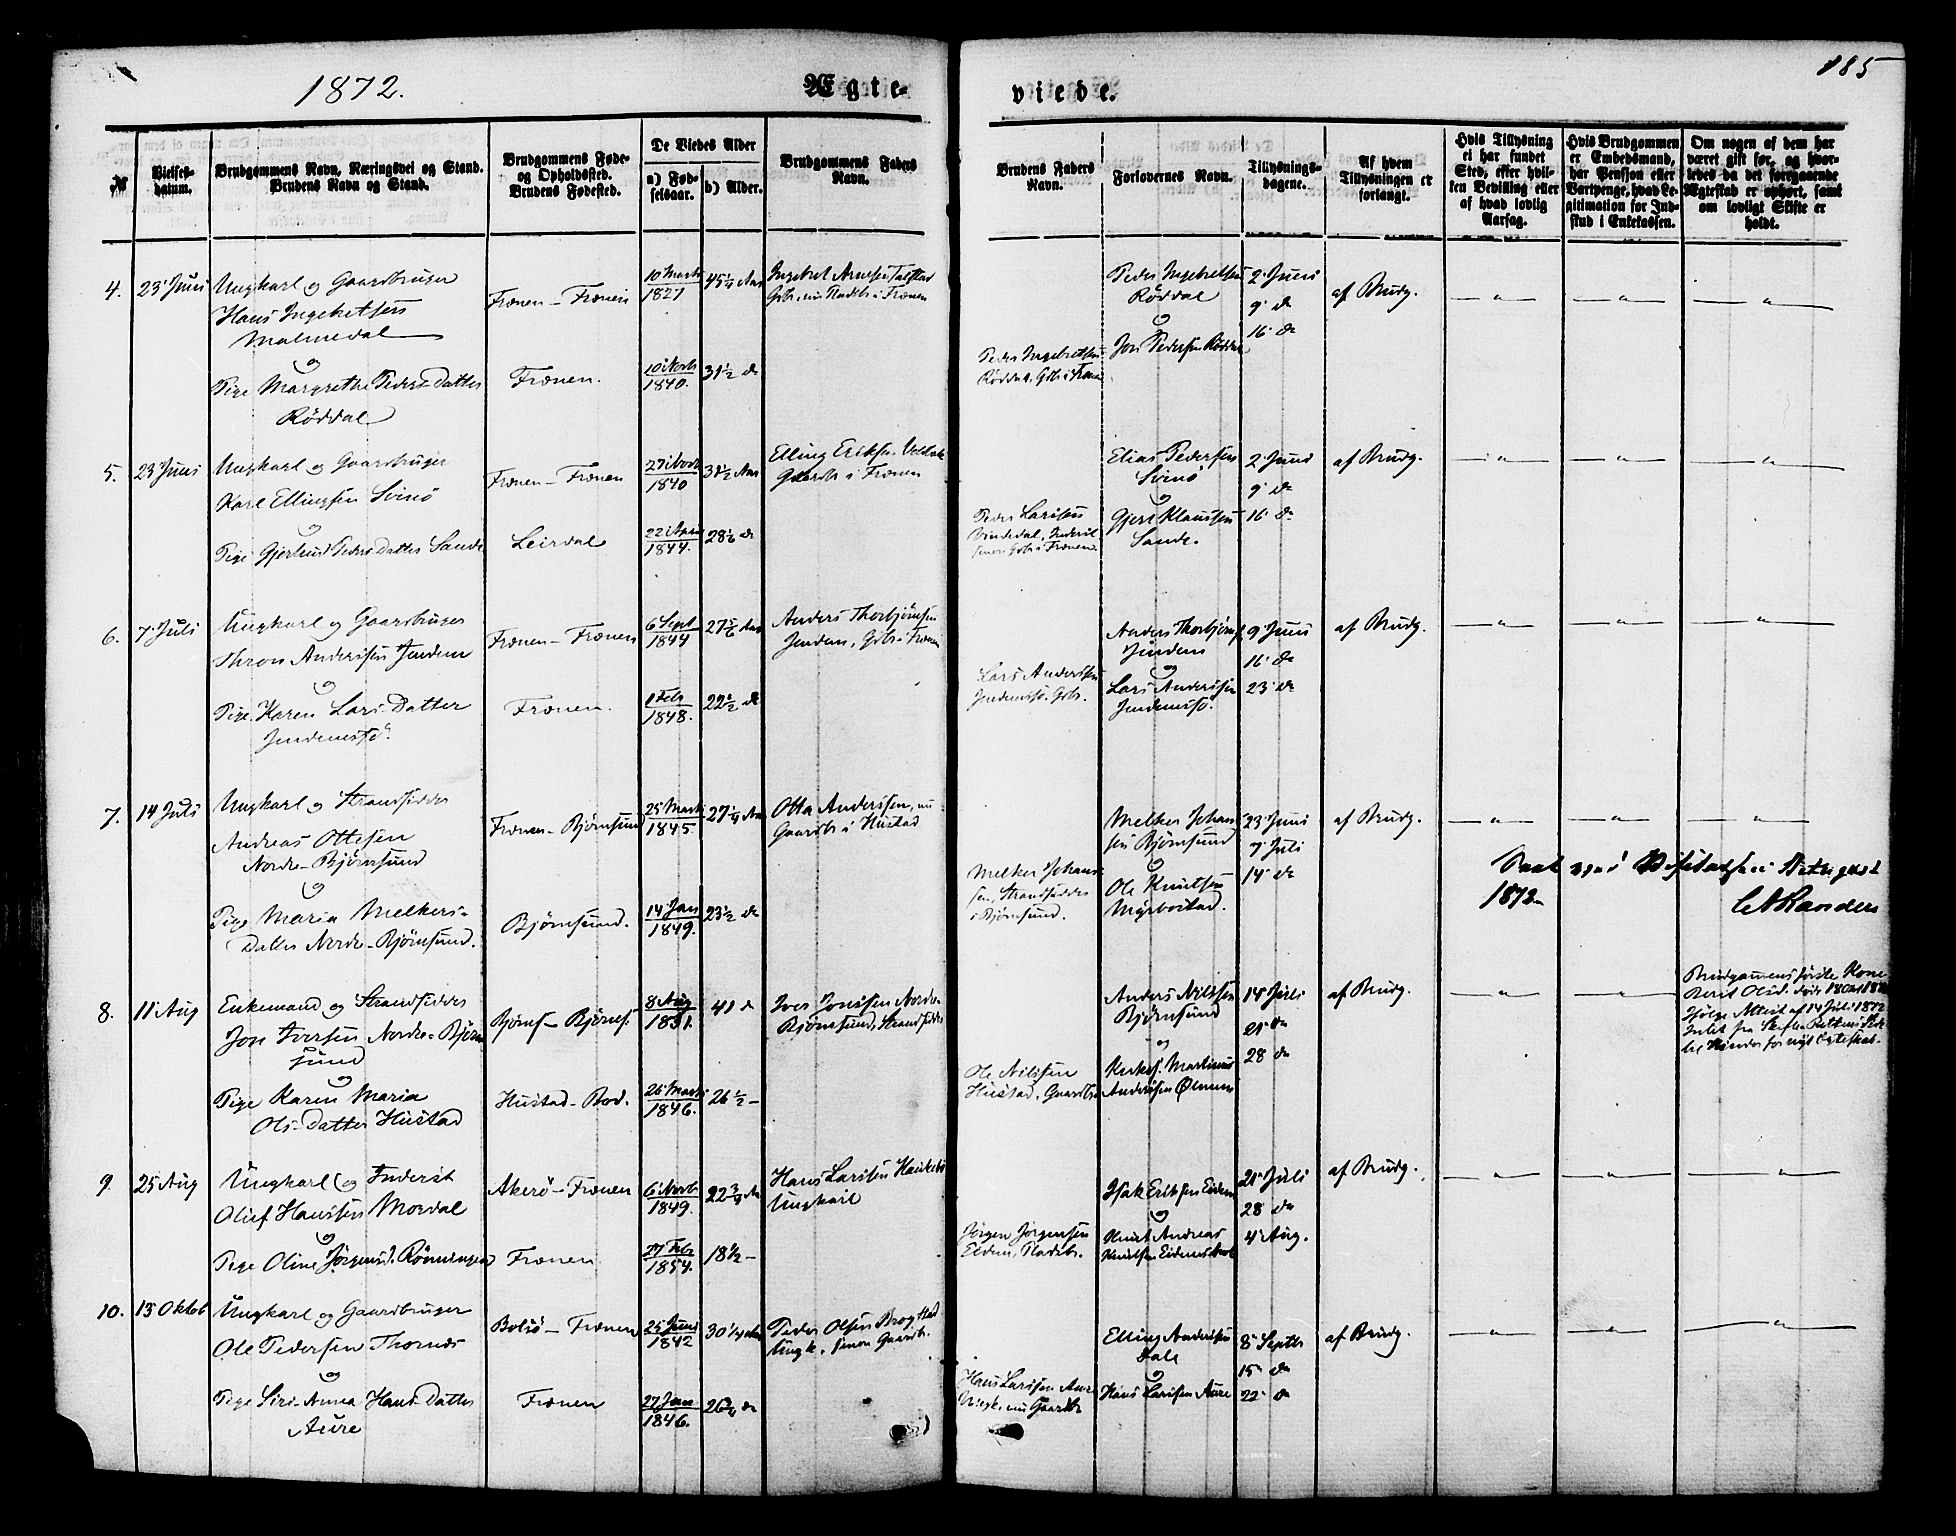 1872.
Ægte-
viede.
185
№
Vielses-
datum.
Brudgommens Navn, Næringsvei og Stand.
Brudens Navn og Stand.
Brudgommens Føde-
og Opholdssted.
Brudens Fødested.
De Viedes Alder
a) Fød-
selsaar.
b) Alder.
Brudgommens Faders
Navn.
Brudens Faders
Navn.
Forlovernes Navn.
Tillysnings-
dagene.
Af hvem
Tillysningen er
forlangt.
Hvis Tillysning
ei har fundet
Sted, efter hvil-
ken Bevilling eller
af hvad lovlig
Aarsag.
Hvis Brudgommen
er Embedsmand,
har Pension eller
Vartpenge, hvad Le-
gitimation for Ind-
skud i Enkekassen.
Om nogen af dem har
været gift før, og hvor-
ledes da det foregaaende
Ægteskab er ophørt, samt
om lovligt Skifte er
holdt.
4. 23 Juni
Ungkarl og Gaardbruger
Hans Ingebretsen
Malmedal
og
Pige Margrethe Peders Datter
Røddal
Frænen - Frænen
Frænen.
10 Marts
1827
45 1/4 Aar
10 Novb
1840.
31 1/2 do
Ingebret Arnesen Talstad
Gdb. nu Pladsb i Frænen
Peder Ingebretsen
Røddal, Gdb i Frænen
Peder Ingebretsen
Røddal
og
Jon Pedersen Røddal
2 Juni
9 do
16 do
af Brudg.
5. 23 Juni
Ungkarl og Gaardbruger
Karl Ellingsen Svinø
og
Pige Gjertrud Peders Datter Sande
Frænen - Frænen
Leirdal
27 Novb
1840
31 1/2 Aar
22 April
1844.
28 1/6 do
Elling Eriksen
Gaardb i Frænen
Peder Larsen
Elias Pedersen
Svinø
og
Gjert Klaussen
Sande.
2 Juni
9 do
16 do
af Brudg.
6. 7 Juli
Ungkarl og Gaardbruger
Thron Anderssen Jendem
og
Pige Karen Lars Datter
Jendemssø.
Frænen - Frænen
Frænen.
6 Sept
1844
27 5/6 Aar
1 Feb
1848.
22 1/2 do
Anders Thorbjørnsen
Jendem, Gdb i Frænen
Lars Anderssen
Jendemssø, Gdb.
Anders Thorbjørns.
Jendem
og
Lars Anderssen
Jendemssø.
9 Juni
16 do
23 do
af Brudg.
7. 14 Juli
Ungkarl og Strandsidder
Andreas Ottesen
Nordre-Bjørnsund
og
Pige Maria Melkers-
Datter Nordre-Bjørnsund.
Frænen - Bjørnsund
Bjørnsund.
25 Marts
1845
27 1/4 Aar
14 Jan
1849.
23 1/2 do
Otta Anderssen, nu
Gaardb i Hustad
Melker Johans-
sen, Strandsidder
i Bjørnsund.
Melker Johan-
sen Bjørnsund
og
Ole Knutsen
Myrbostad.
23 Juni
7 Juli
14 do
af Brudg.
1872
8. 11 Aug
Enkemand og Strandsidder
Jon Iversen Nordre-Bjørn-
sund
og
Pige Karen Maria
Ols-Datter Hustad
Bjørns - Bjørnsf.
Hustad - Bod.
8 Aug
1831.
41 do
26 Marts
1846.
26 1/2 -
Iver Jonssen Nordre-
Bjørnsund, Strandsidder
Ole Nilssen
Hustad, Gaardbr
Anders Nilssen
Bjørnsund
og
Kirkes. Martinus
Anderssen
14 Juli
21 do
28 do
af Brudg.
Brudgommens første Kone
Berit Olsd.
9. 25 Aug
Ungkarl og Inderst
Oluf Hanssen Mordal
og
Pige Oline Jørgensd. Rønningen
Akerø - Frænen
Frænen
6 Novb
1849.
22 3/4 Aar
27 Feb
1854.
18 1/2 -
Hans Larssen
Ungkarl
Jørgen Jørgensen
Eidem, Pladsb.
Isak Eriksen Eidem
og
Knut Andreas
Knutsen
21 Juli
28 do
4 Aug.
af Brudg.
10. 13 Oktob
Ungkarl og Gaardbruger
Ole Pedersen Thornes
og
Pige Siri-Anna Hans Datter
Aure
Bolsø - Frænen
Frænen
25 Juni
1842
30 1/4 Aar
27 Jan
1846.
26 3/4 do
Peder Olsen
Ungk. senere Gaardb.
Hans Larssen Aure
Ungk. nu Gaardb
Elling Anderssen
Dale
og
Hans Larssen Aure
8 Septb
15 do
22 do
af Brudg.